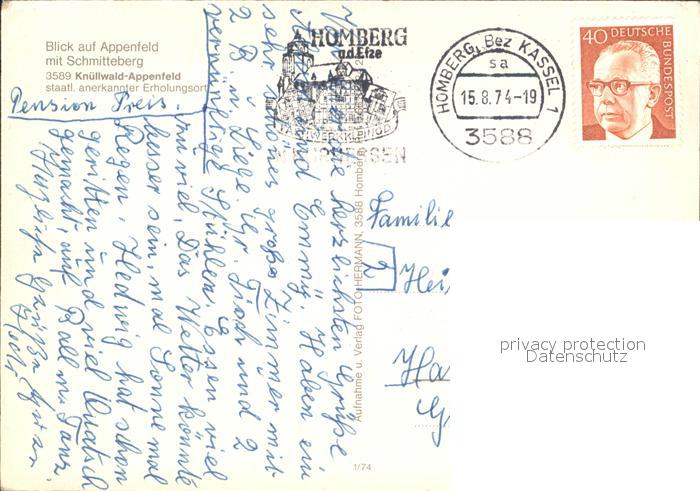 Blick auf Appenfeld
mit Schmitteberg
3589 Knüllwald-Appenfeld
staatl. anerkannter Erholungsort
HOMBERG
a.d. Efze
FACHWERKKLEINOD
HESSEN
HOMBERG, Bez KASSEL 1
sa
15.8.74-19
3588
40 DEUTSCHE
BUNDESPOST
Pension Preis.
die herzlichsten Grüße
und Emmy. Haben ein
sehr schönes großes Zimmer mit
2 B. u. Liege. Gr. Tisch und 2
vernünftige Stühlen. Essen viel
zu viel. Das Wetter könnte
besser sein, mal Sonne mal
Regen. Hedwig hat schon
geritten und viel Quatsch
gemacht, auf Ball u. Tanz.
Herzliche Grüße
Aufnahme u. Verlag FOTO-HERMANN, 3588 Homberg
1/74
Familie
Hei
Ha
privacy protection
Datenschutz